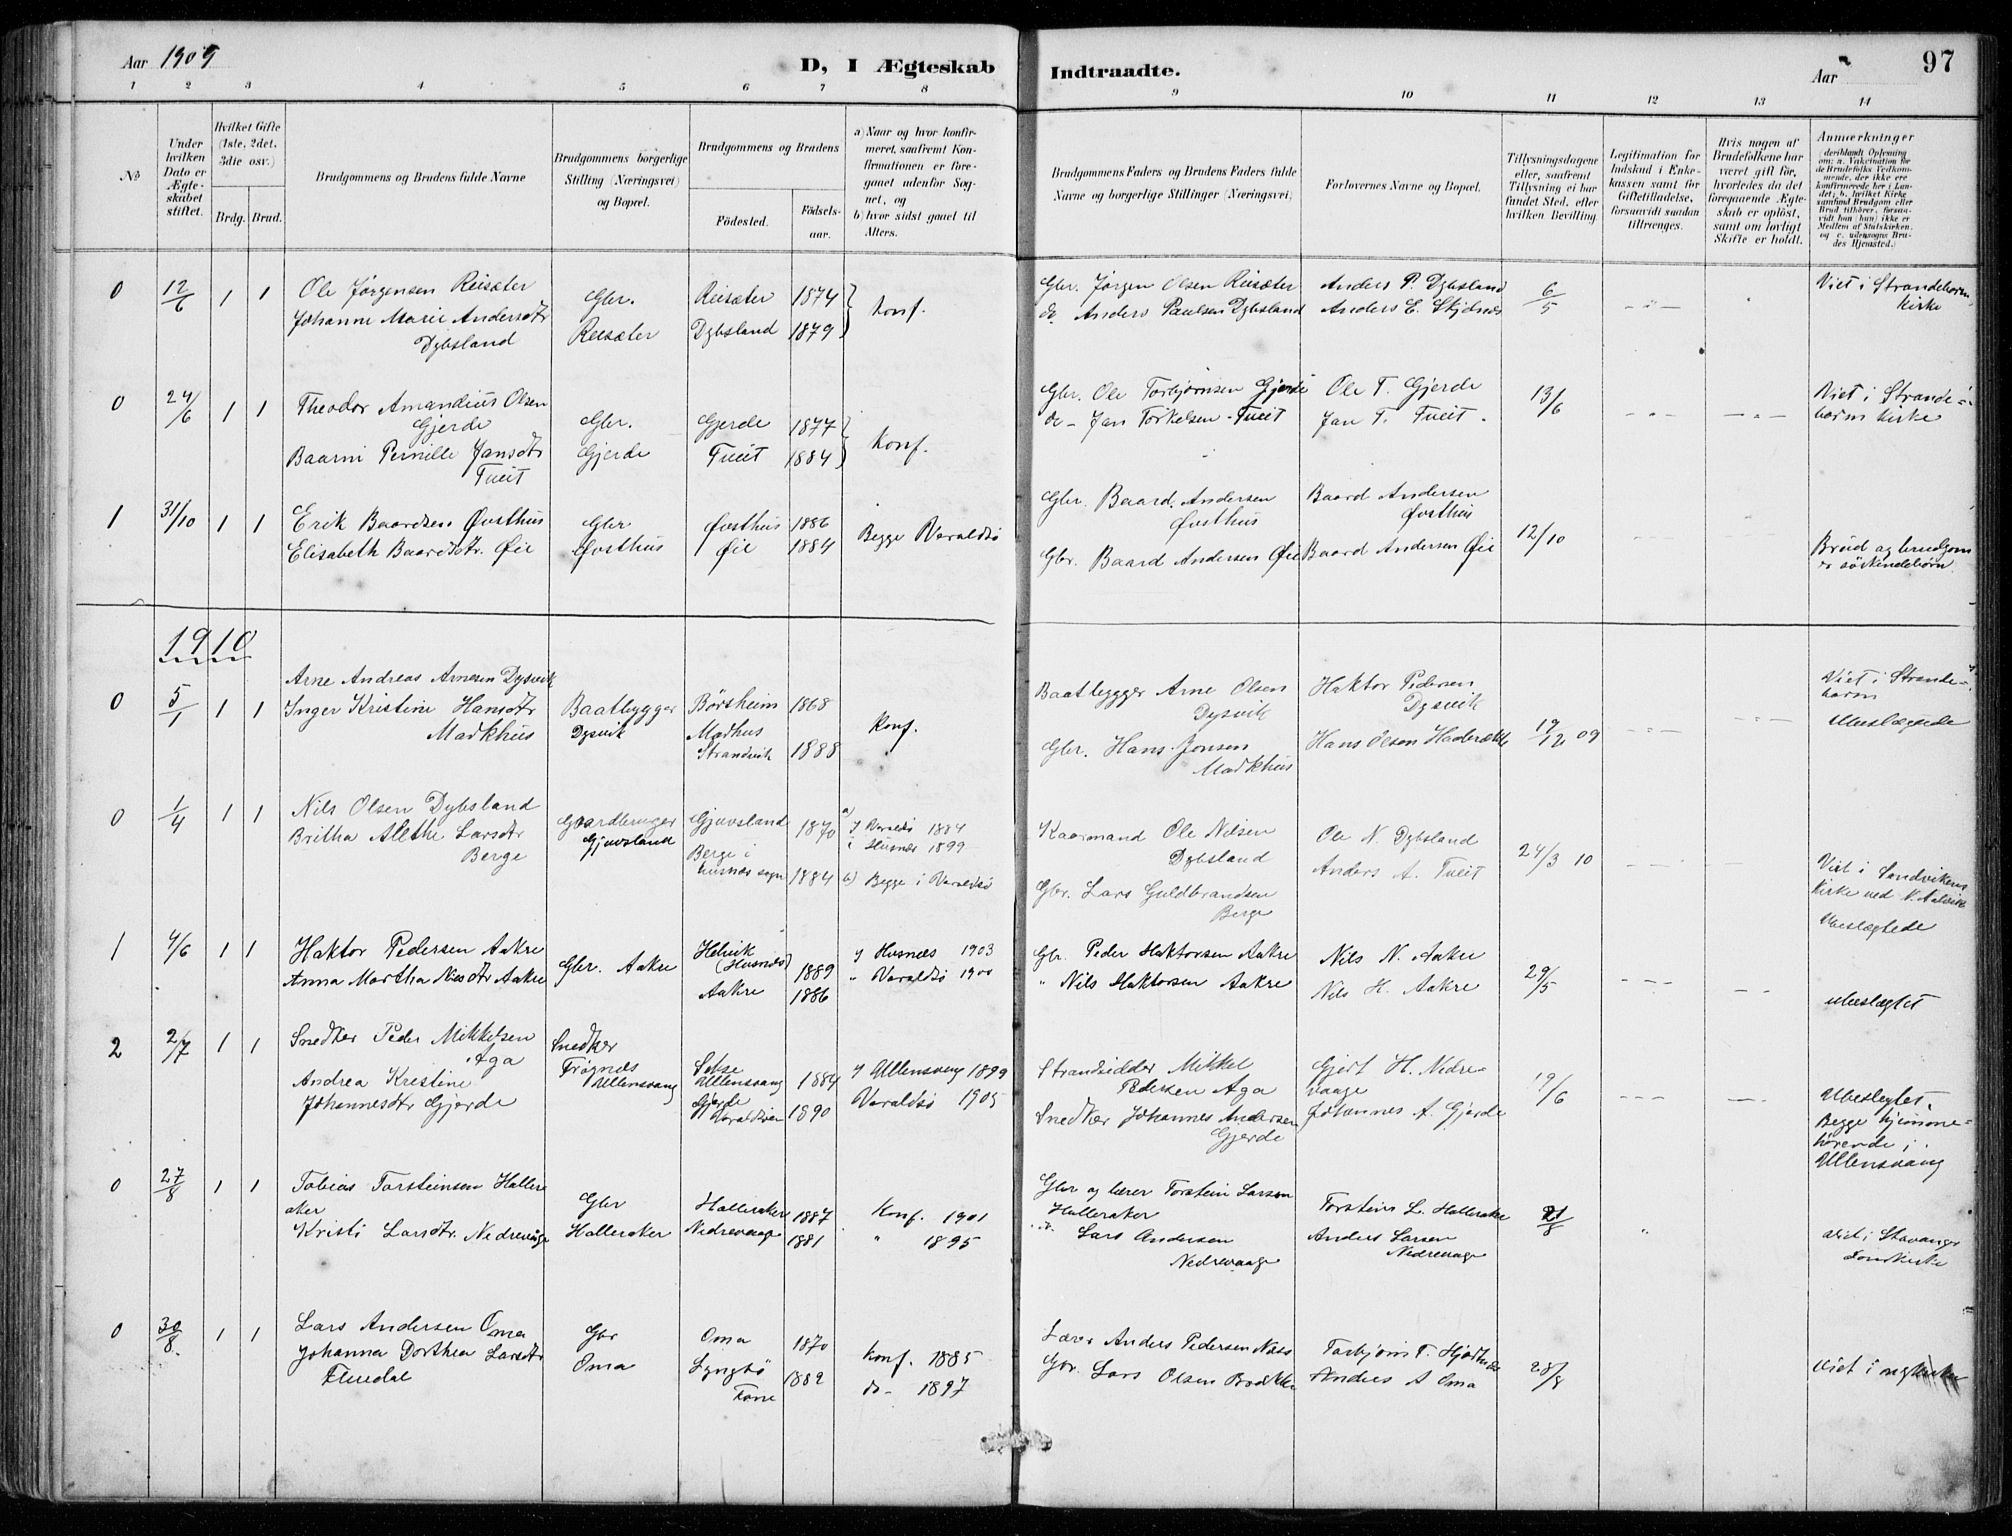 Aar 1909
D, I Ægteskab
Indtraadte.
Aar
97
1 2 3 4 5 6 7 8 9 10 11 12 13 14
No
Under hvilken Dato er Ægteskabet stiftet.
Hvilket Gifte (1ste, 2det, 3die osv.)
Brdg. Brud.
Brudgommens og Brudens fulde Navne
Brudgommens borgerlige Stilling (Næringsvei) og Bopæl.
Brudgommens og Brudens
Födested.
Födsels-aar.
a) Naar og hvor konfirmeret, saafremt Konfirmationen er foregaaet udenfor Sognet, og
b) hvor sidst gaaet til Alters.
Brudgommens Faders og Brudens Faders fulde Navne og borgerlige Stillinger (Næringsvei)
Forlovernes Navne og Bopæl.
Tillysningsdagene eller, saafremt Tillysning ei har fundet Sted, efter hvilken Bevilling.
Legitimation for Indskud i Enkekassen samt for Giftetilladelse, forsaavidt saadan tiltrænges.
Hvis nogen af Brudefolkene har været gift før, hvorledes da det foregaaende Ægteskab er oplöst, samt om lovligt Skifte er holdt.
Anmærkninger
0 12/6 1 1
Ole Jørgensen Reisæter
Johanne Marie Andersdtr
Dybsland
Gbr.
Reisæter
Reisæter 1874
Dybsland 1879
Konf.
Gbr. Jørgen Olsen Reisæter
do Anders Paulsen Dybsland
Anders P. Dybsland
Anders E. Skjelnes
6/5
Viet i Strandebarm
Kirke
0 24/6 1 1
Theodor Amandius Olsen
Gjerde
Baarni Pernille Jansdtr
Tveit
Gbr.
Gjerde
Gjerde 1877
Tveit 1884
Konf.
Gbr. Ole Torbjørnsen Gjerde
do - Jan Torkelsen Tveit
Ole T. Gjerde
Jan T. Tveit
13/6
Viet i Strande-
barm Kirke
1 31/10 1 1
Erik Baardsen Øvsthus
Elisabeth Baardsdtr. Øie
Gbr
Øvsthus
Øvsthus 1886
Øie 1884
Begge Varaldsø
Gbr. Baard Andersen
Øvsthus
Gbr. Baard Andersen Øie
Baard Andersen
Øvsthus
Baard Andersen Øie
12/10
Brud og brudgom
er söskendebørn
1910
0 5/1 1 1
Arne Andreas Arnesen Dysvik
Inger Kristine Hansdtr
Madkhus
Baatbygger
Dysvik
Børsheim 1868
Madhus
Strandvik 1888
Konf.
Baatbygger Arne Olsen
Dysvik
Gbr. Hans Jonsen
Madkhus
Haktor Pedersen
Dysvik
Hans Olsen
19/12 09
Viet i Strande-
barm
Ubeslægtede
0 1/4 1 1
Nils Olsen Dybsland
Britha Alethe Larsdtr
Berge
Gaardbruger
Gjuvsland
Gjuvsland 1870
Berge i
husnæs sogn 1884
a) I Varaldsø 1884
i Husnes 1899
b) Begge i Varaldsø
Kaarmand Ole Nilsen
Dybsland
Gbr. Lars Guldbrandsen
Berge
Ole N. Dybsland
Anders A. Tveit
24/3 10
Viet i Sandvikens
Kirke
Ubeslægtede
1 4/6 1 1
Haktor Pedersen Aakre
Anna Martha Nilsdtr Aakre
Gbr. Aakre
Helvik
(Husnæs) 1889
Aakre 1886
I Husnæs 1903
" Varaldsö 1900
Gbr. Peder Haktorsen Aakre
" Nils Haktorsen Aakre
Nils N. Aakre
Nils H. Aakre
29/5
ubeslægtet
2 2/7 1 1
Snedker Peder Mikkelsen
Aga
Andrea Kristine
Johannesdtr Gjerde
Snedker
Trøgnæs
Ullensvang
Sekse
Ullensvang 1884
Gjerde
Varaldsøen 1890
I Ullensvang 1899
Varaldsö 1905
Strandsidder Mikkel
Pedersen Aga
Snedker Johannes Andersen
Gjerde
Gjert H. Nedre-
vaage
Johannes A. Gjerde
19/6
Ubeslegtet.
Begge hjemme-
hørende i
Ullensvang
0 27/8 1 1
Tobias Torsteinsen Hallere
aker
Kristi Larsdtr. Nedrevåge
Gbr
Halleraker
Halleraker 1887
Nedrevaage 1881
Konf. 1901
" 1895
Gbr og lærer Torstein Larsen
Halleraker
Lars Andersen
Nedrevaage
Torstein L. Halleraker
Anders Larsen
Nedrevaage
21/8
Viet i Stavanger
Domkirke
0 30/8. 1 1
Lars Andersen Oma
Johanna Dorthea Larsdtr
Gbr
Oma
Oma 1870
Lyngbö 1882
Konf. 1885
do- 1897
Lærer Anders Pedersen Næss
Gbr. Lars Olsen
Torbjørn T.
Anders A Oma
28/8
Viet i